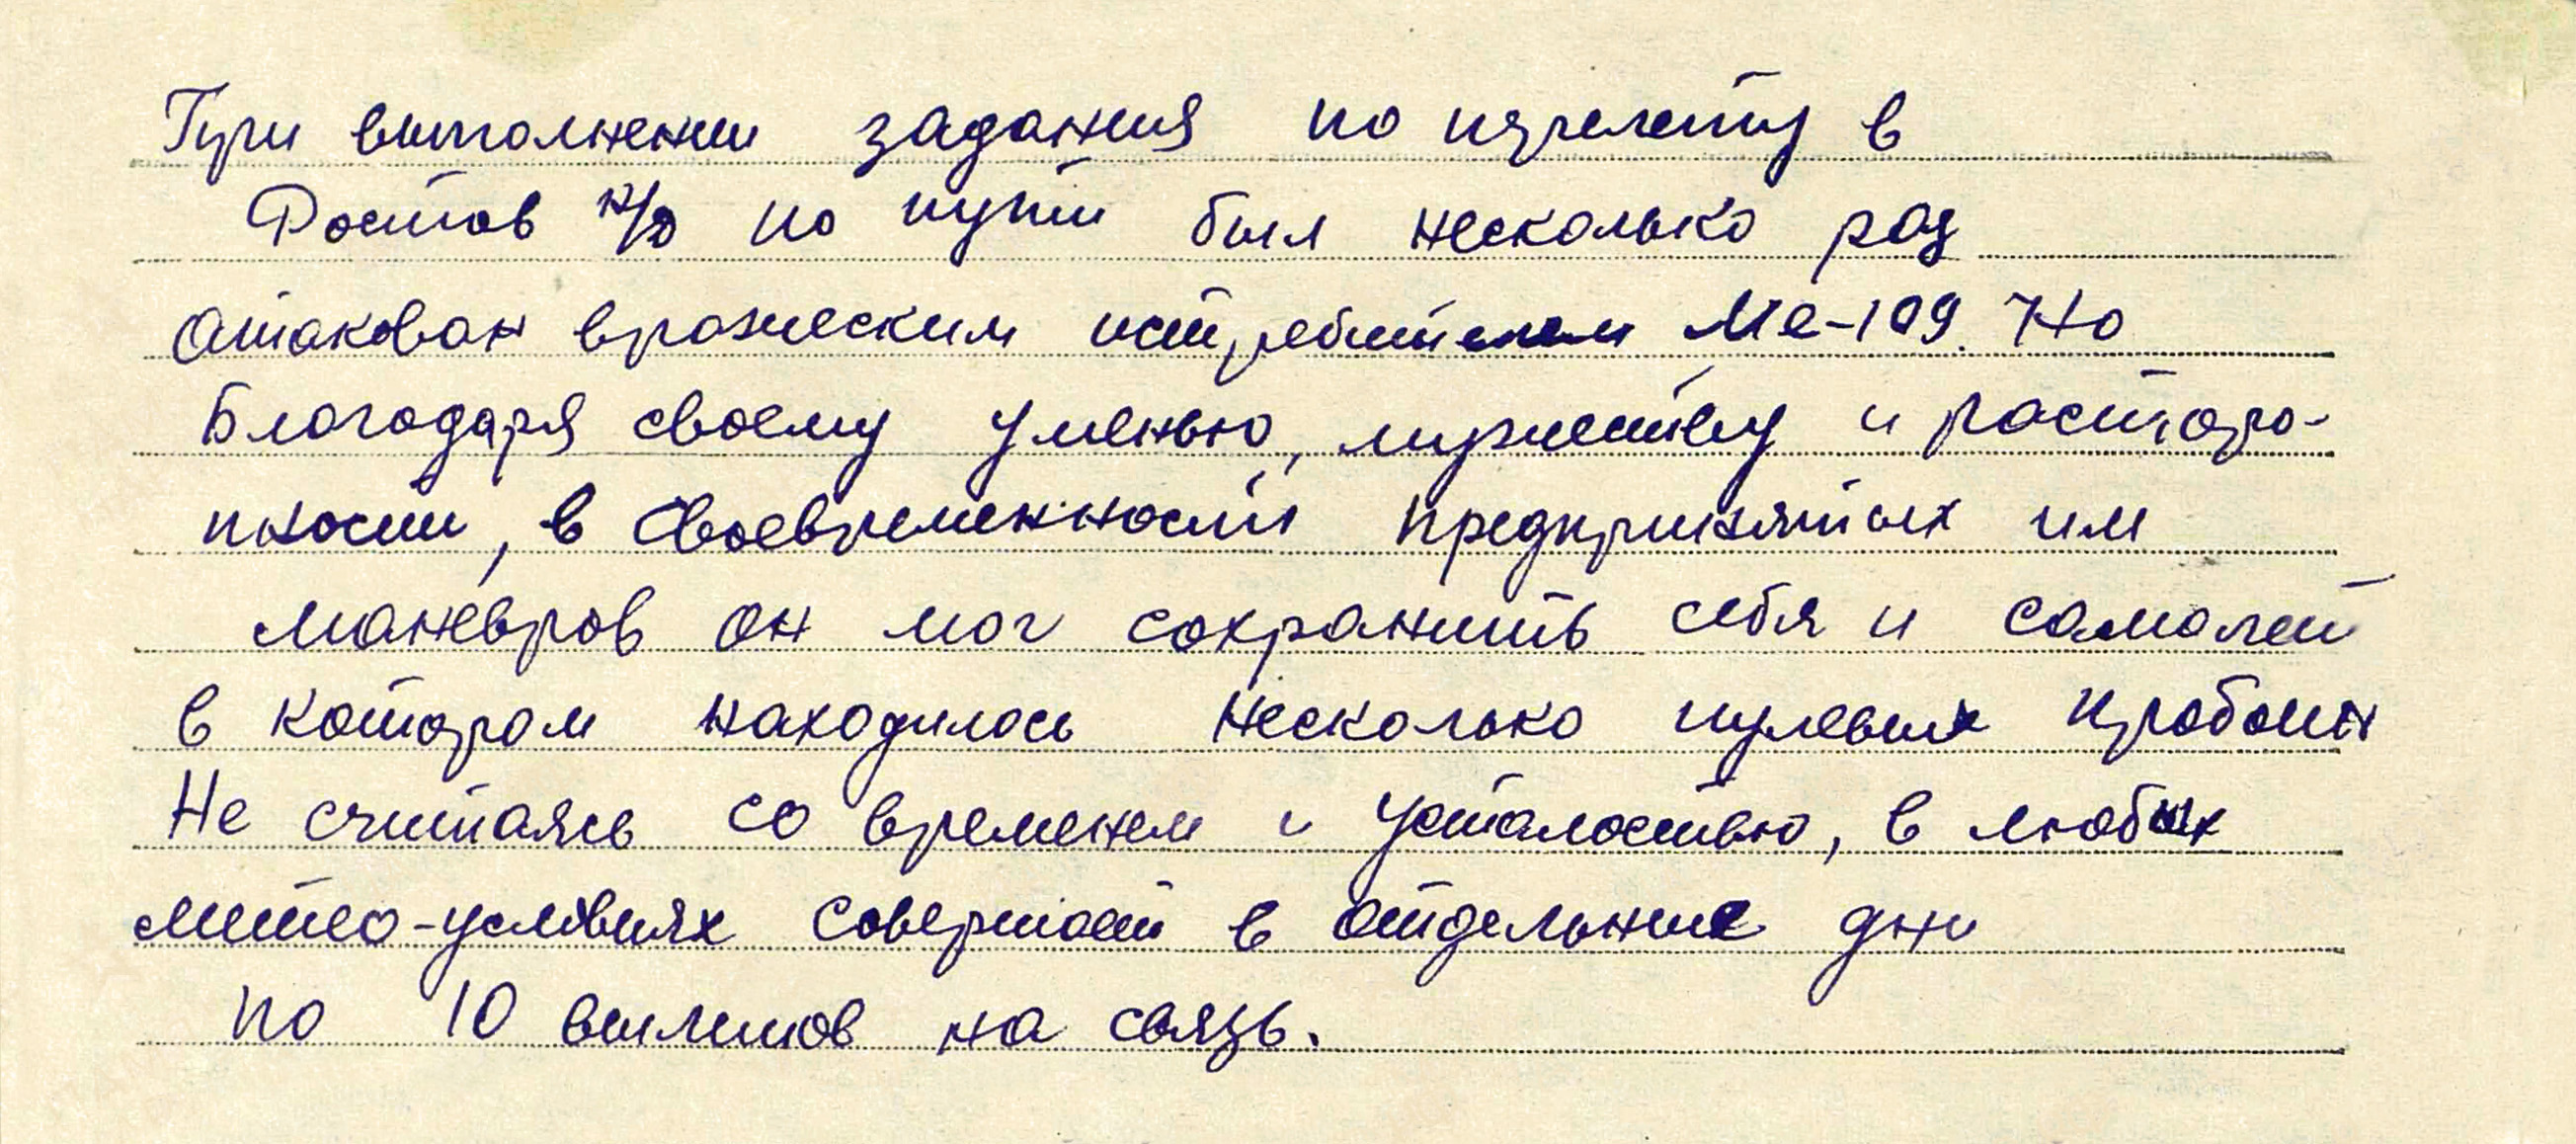 При выполнении задания по перелету в
Ростов н/д по пути был несколько раз
атакован вражеским истребителем Ме-109. Но
Благодаря своему уменью, мужеству и расторо-
пности, в своевременности предпринятых им
маневров он мог сохранить себя и самолет
в котором находилось несколько пулевых пробоин
Не считаясь со временем и усталостью, в любых
метео-условиях совершает в отдельные дни
по 10 вылетов на связь.